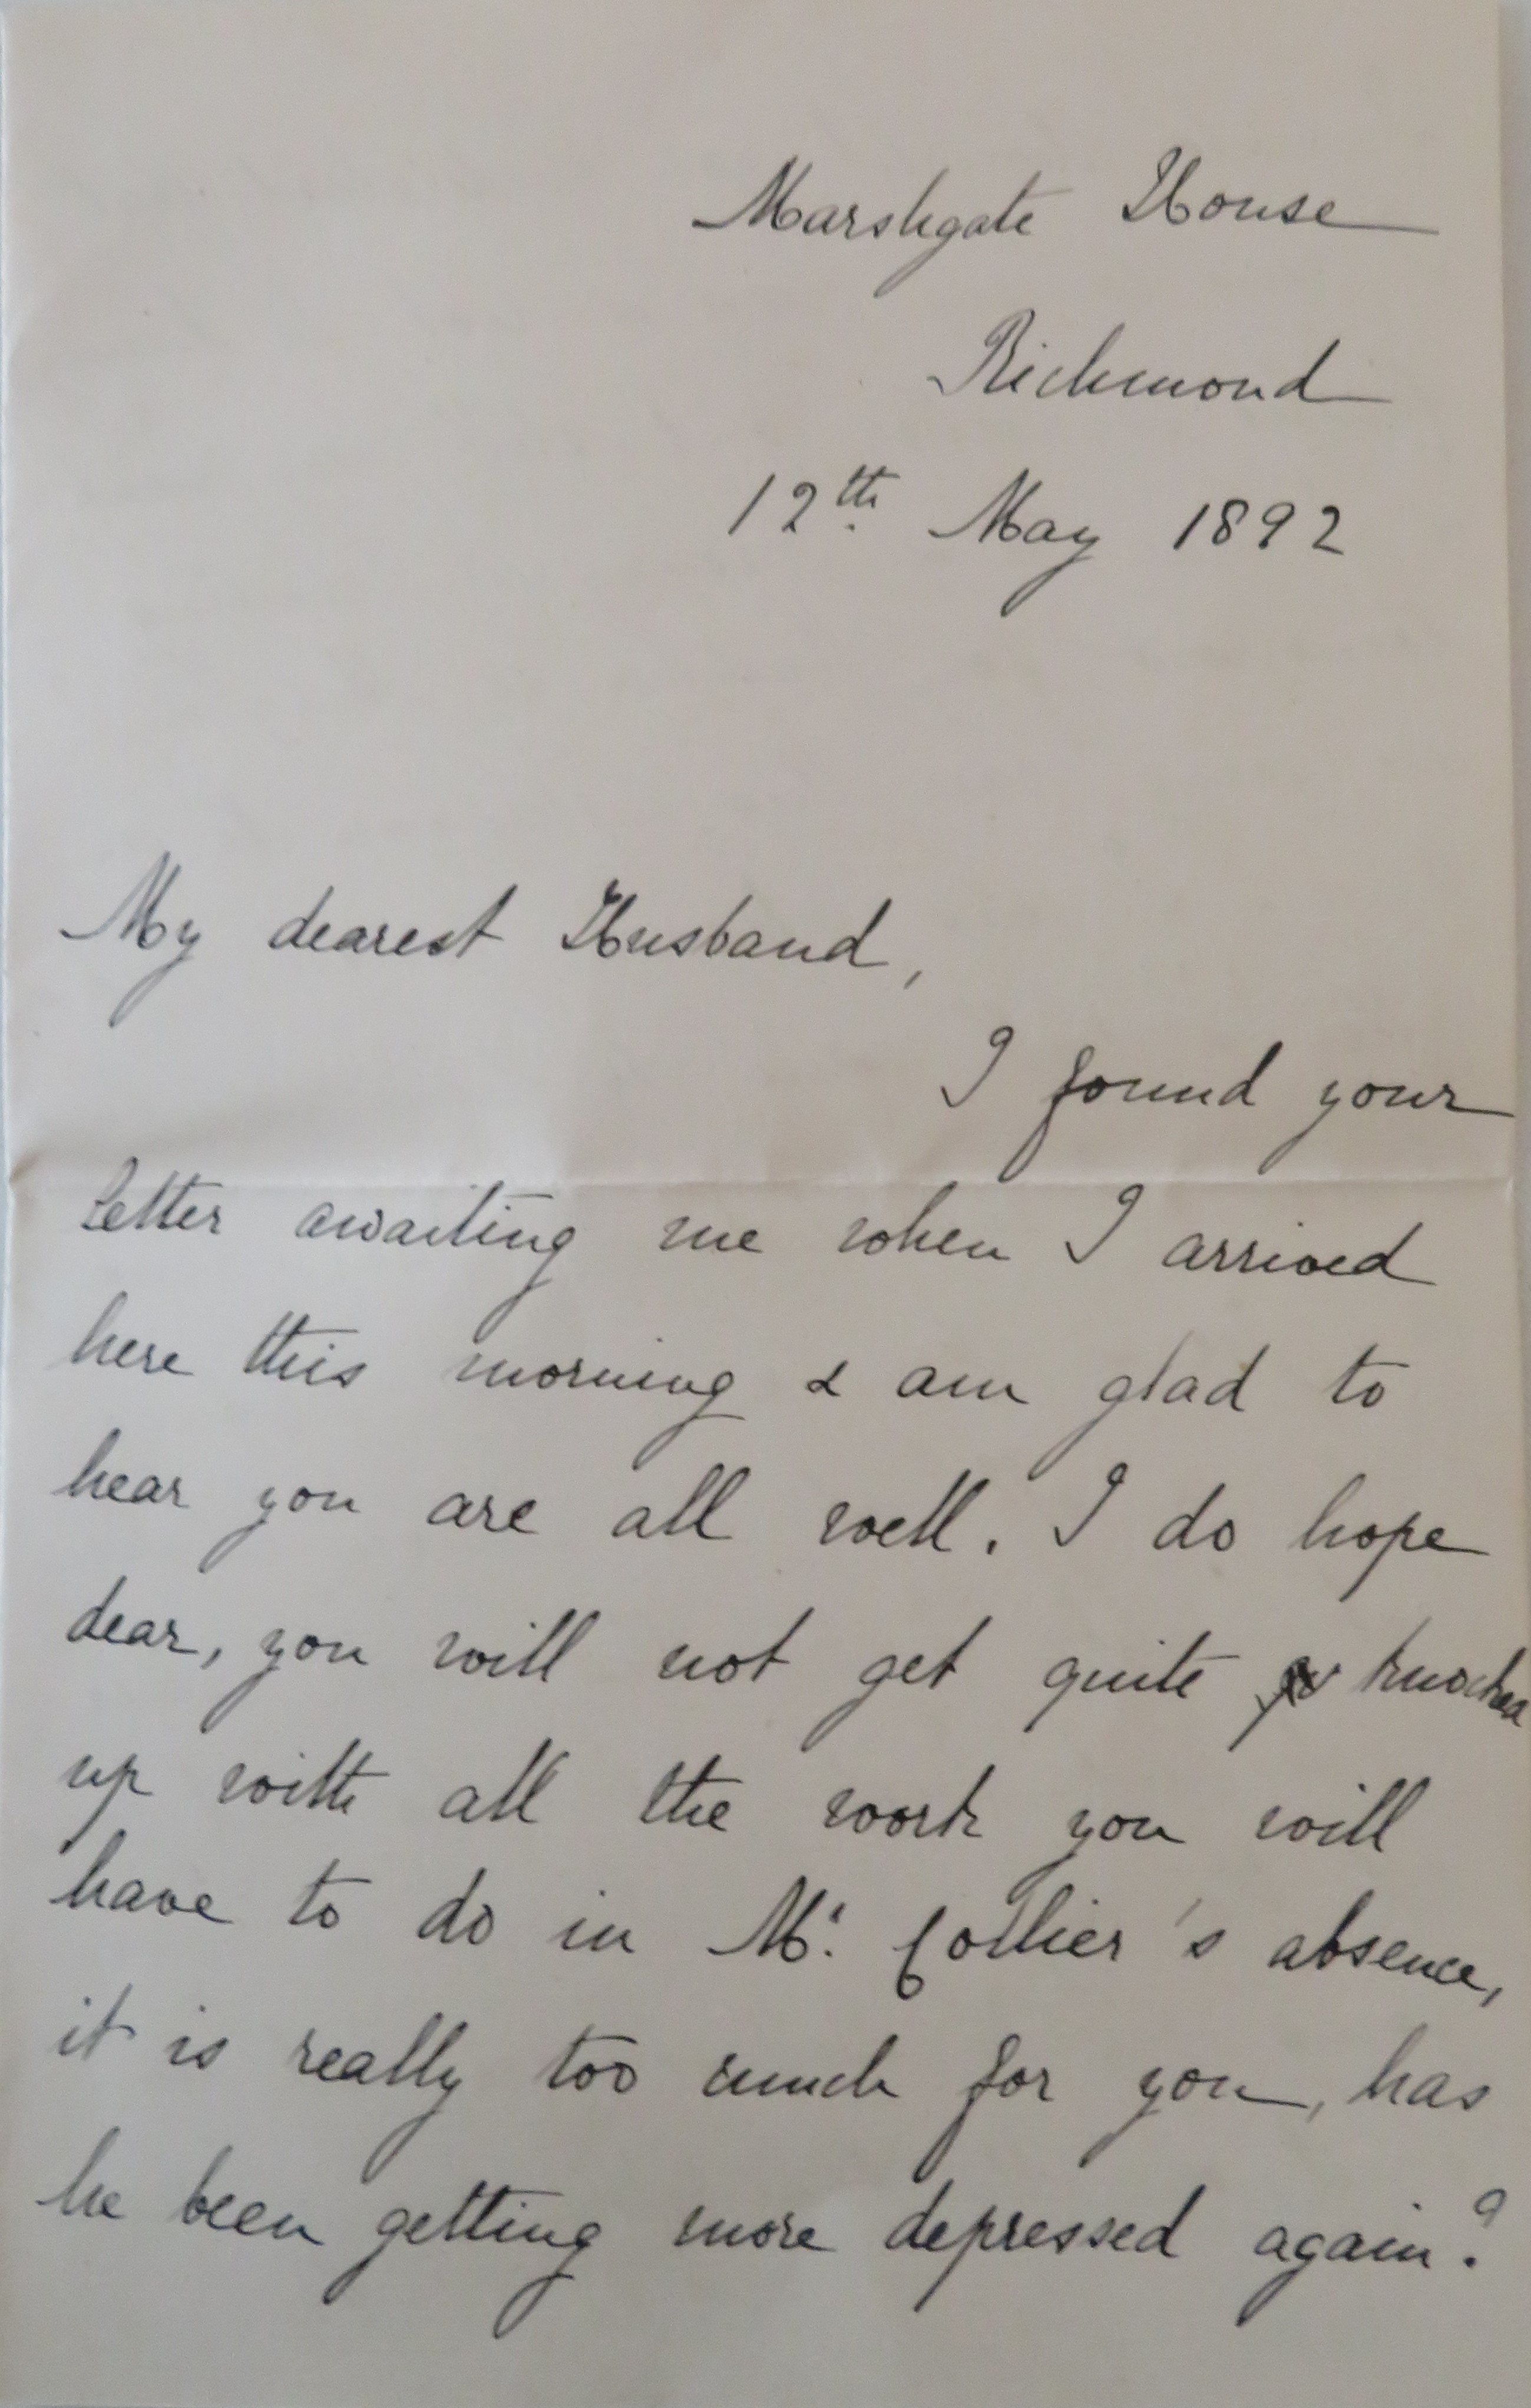 Marshgate House
Richmond
12th May 1892
My dearest Husband,
I found your
letter awaiting me when I arrived
here this morning & am glad to
hear you are all well. I do hope
dear, you will not get quite knocked
up with all the work you will
have to do in Mr. Collier's absence,
it is really too much for you, has
he been getting more depressed again?